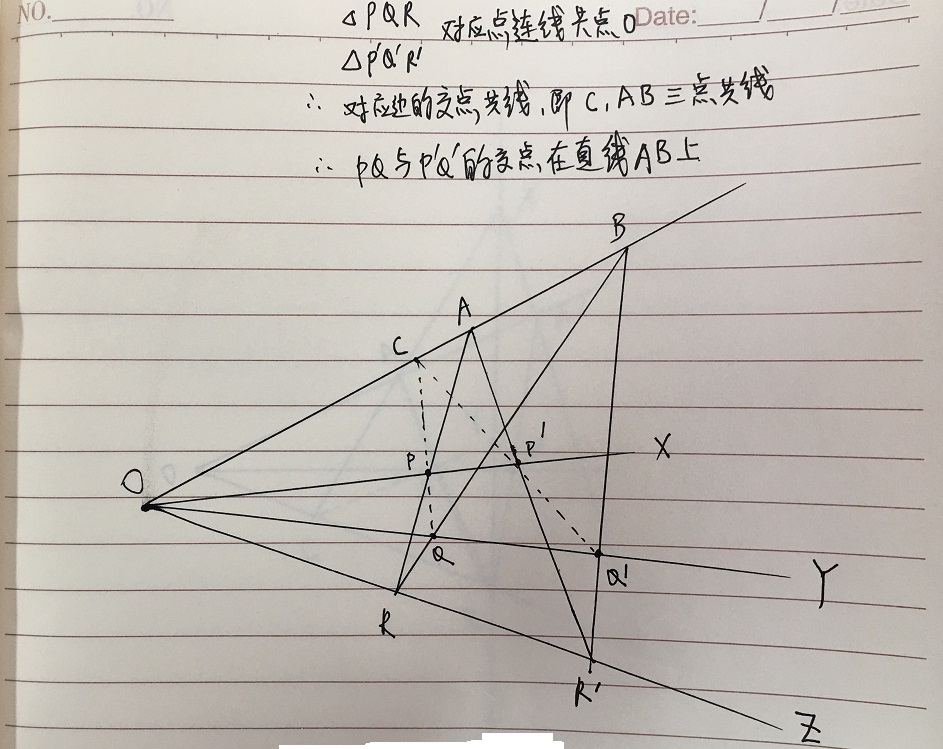 NO.
Date: / /
△PQR 对应点连线共点O
△P'Q'R'
∴ 对应边的交点共线,即C,AB三点共线
∴ PQ与P'Q'的交点在直线AB上
B
A
C
P'
X
P
O
Q
Q'
Y
R
R'
Z